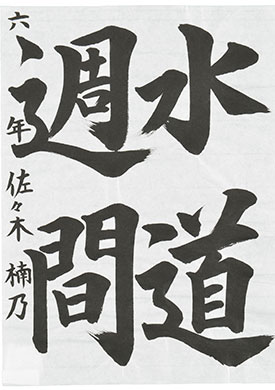 水道
週間
六年 佐々木楠乃